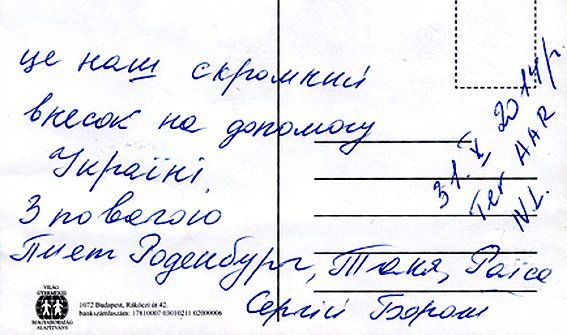 це наш скромний
внесок на допомогу
Україні.
З повагою
Пиет Роденбург, Таня, Раїса
Сергій
31.X 2014р.
Ter AAR
NL.
VILÁG
GYERMEKEI
MAGYARORSZÁG
ALAPÍTVÁNY
1072 Budapest, Rákóczi út 42.
bankszámlaszám: 17810007 03010211 02000006